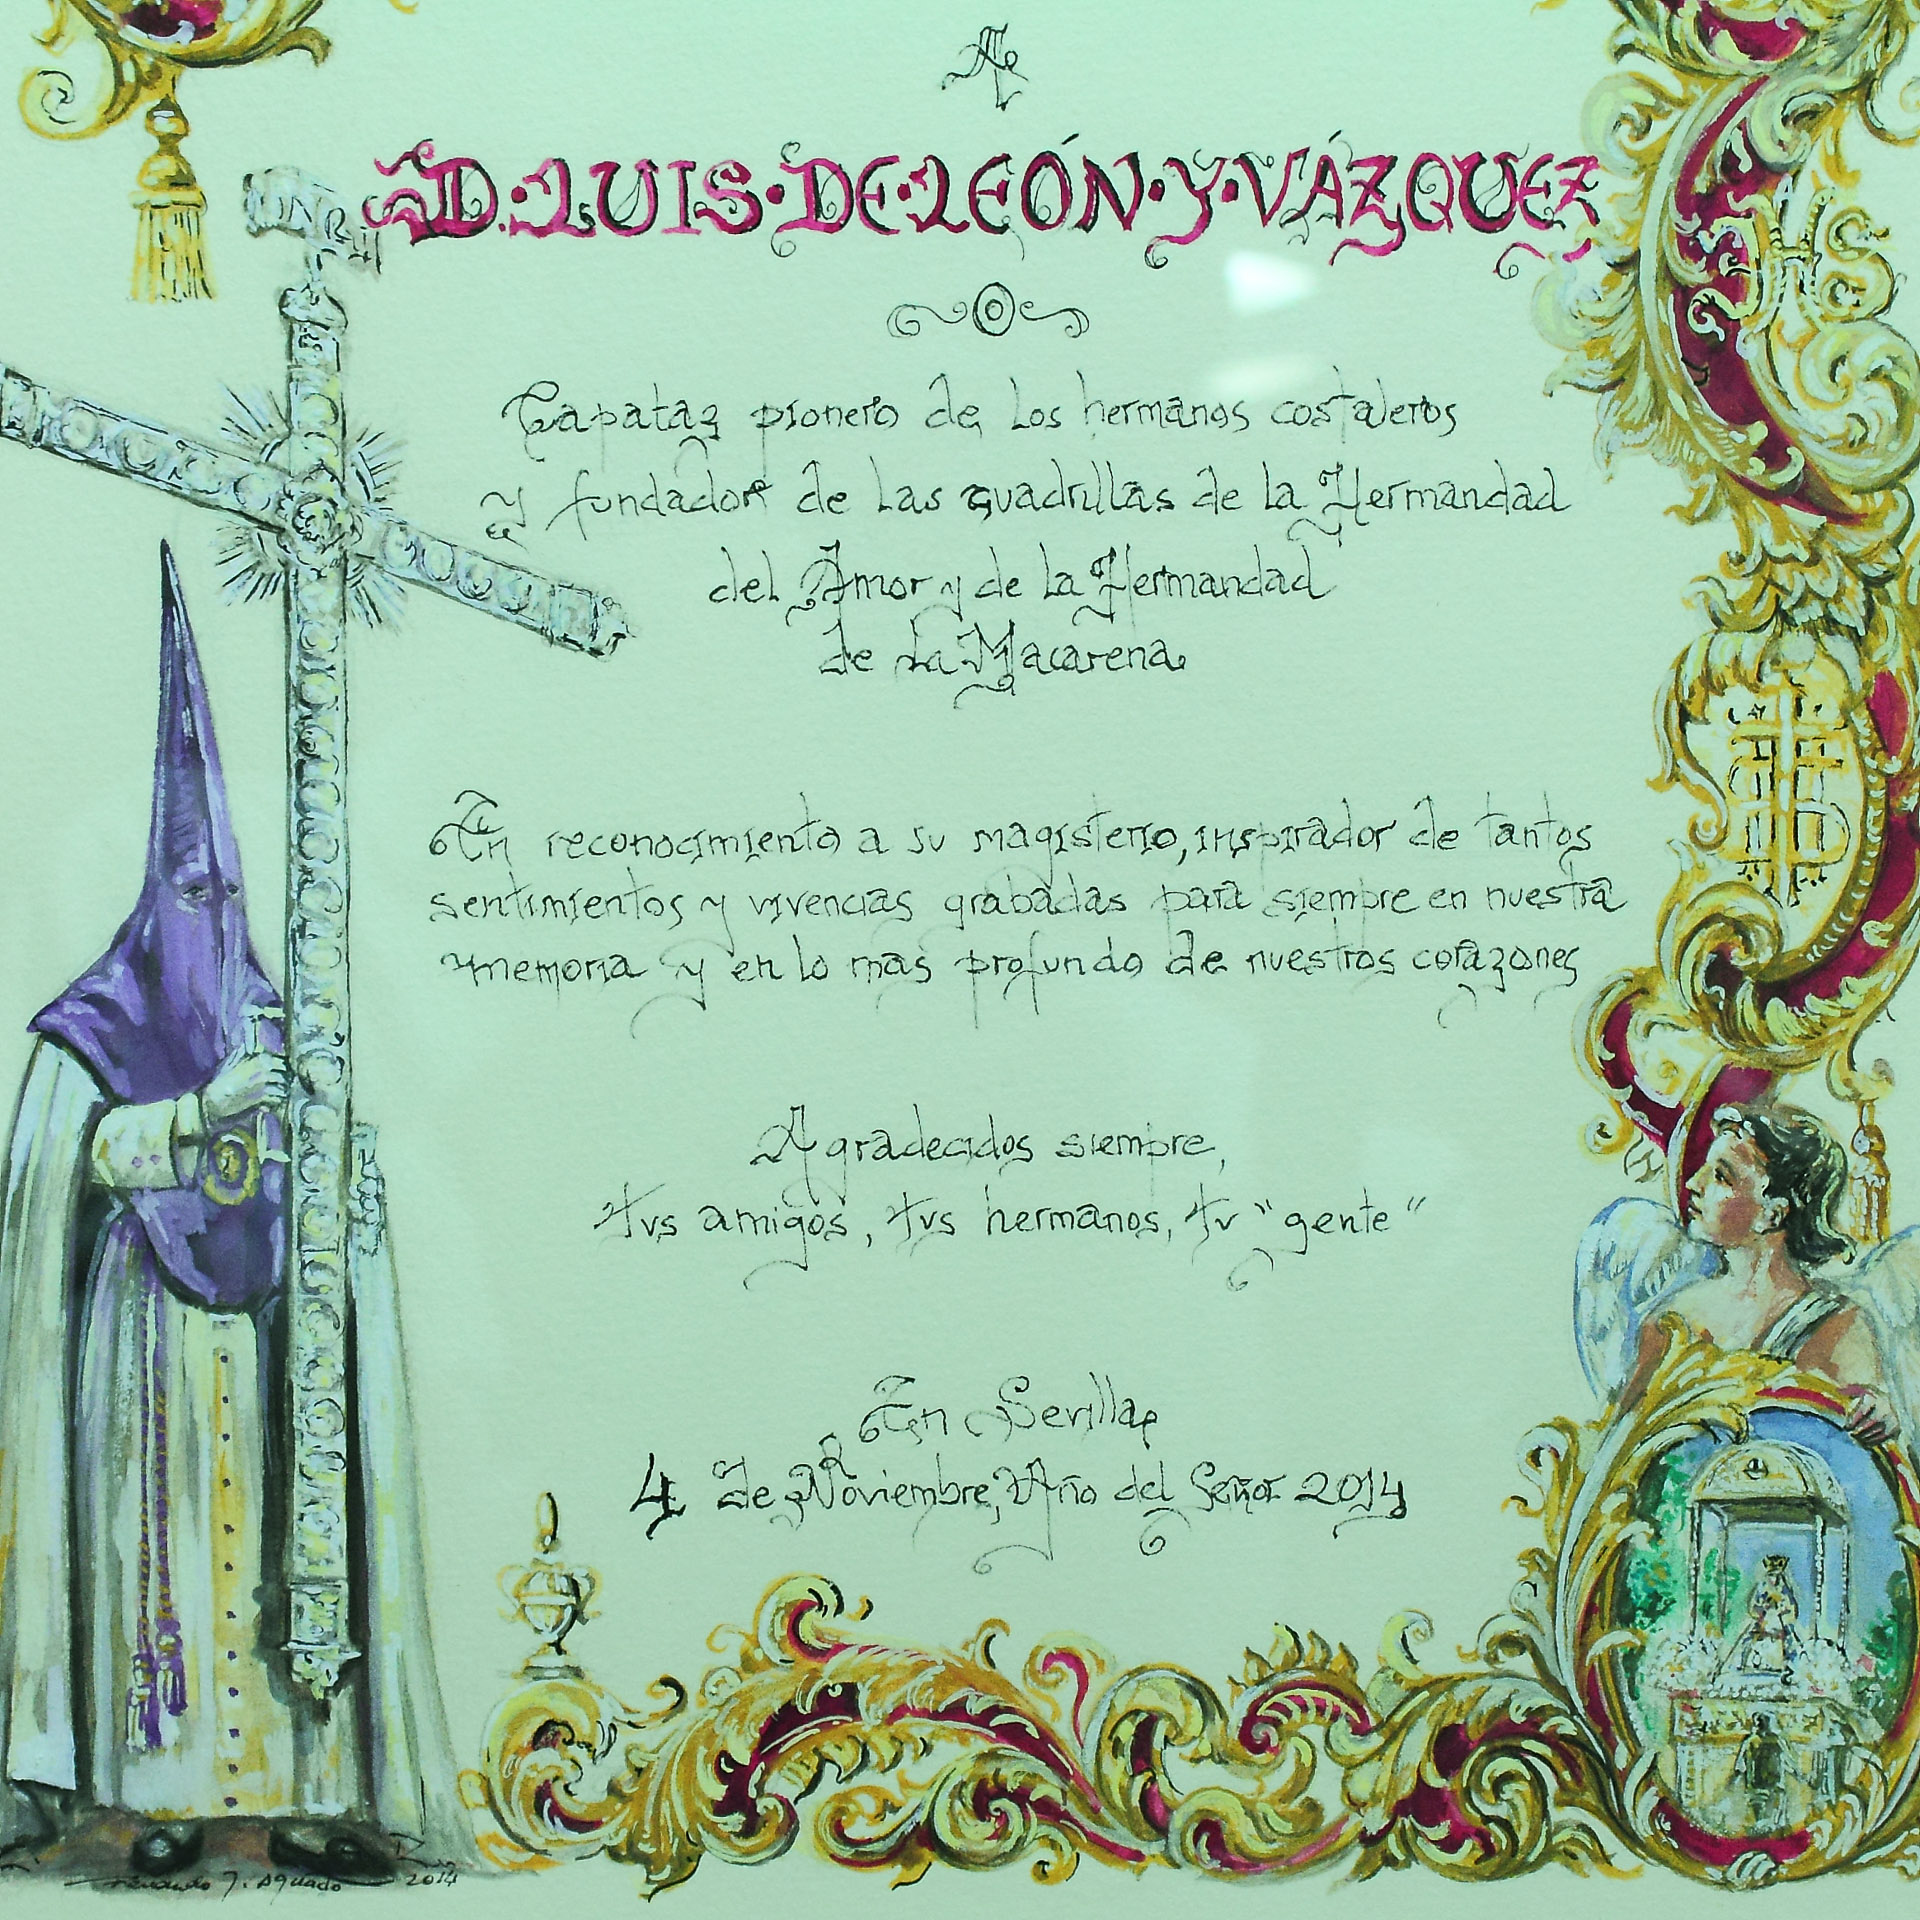 A
D. LUIS · DE · LEÓN · Y · VÁZQUEZ
Capataz pionero de los hermanos costaleros
y fundador de las cuadrillas de la Hermandad
del Amor y de la Hermandad
de La Macarena
En reconocimiento a su magisterio, inspirador de tantos
sentimientos y vivencias grabadas para siempre en nuestra
memoria y en lo mas profundo de nuestros corazones
Agradecidos siempre,
tus amigos, tus hermanos, tu "gente"
En Sevilla
4 de Noviembre, Año del Señor 2014
JHS
Fernando J. Aguado 2014